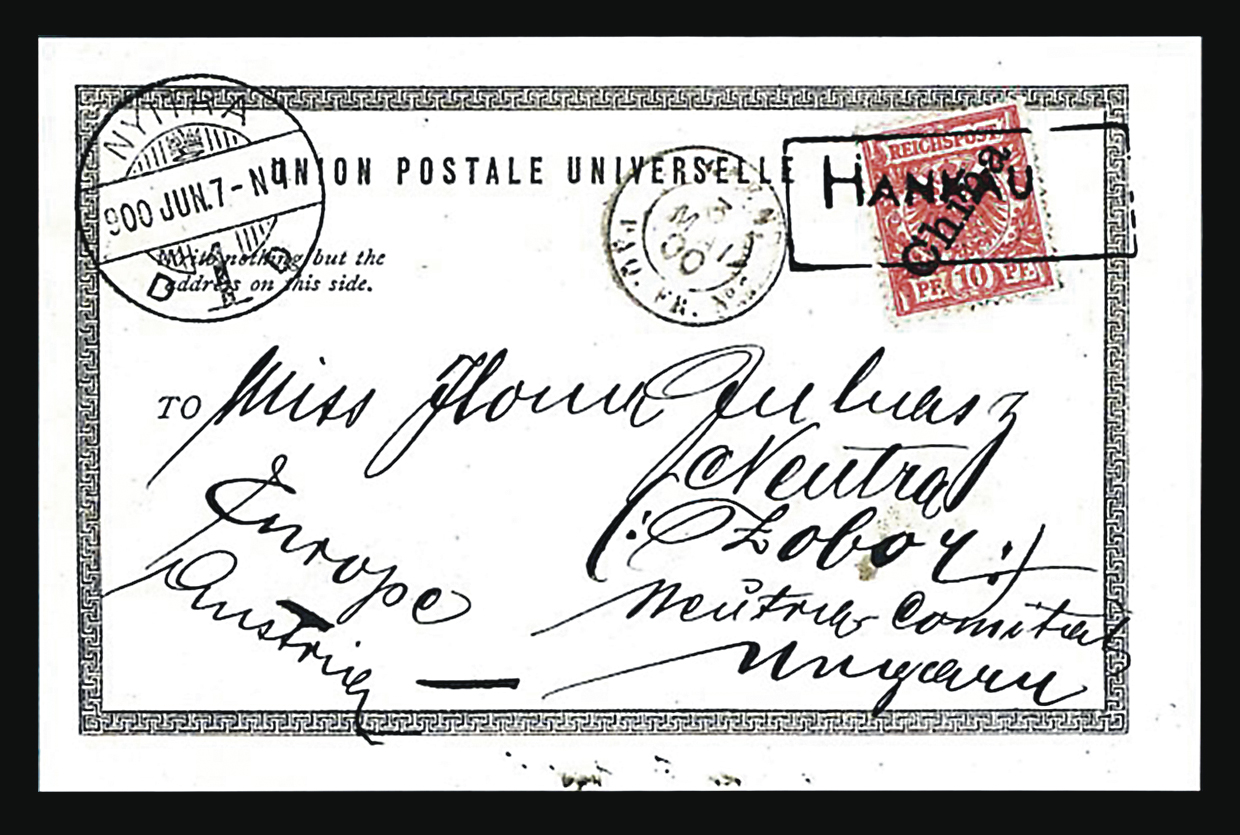 NYITRA
900 JUN.7-N1
D 1 D
UNION POSTALE UNIVERSELLE
Write nothing but the
address on this side.
PAQ. FR. No
HANKAU
REICHSPOST
China
PF. 10 PF.
TO Miss Ilona
Neutra
(:Zobor:)
Neutra Comitat
Ungarn
Europe
Austria